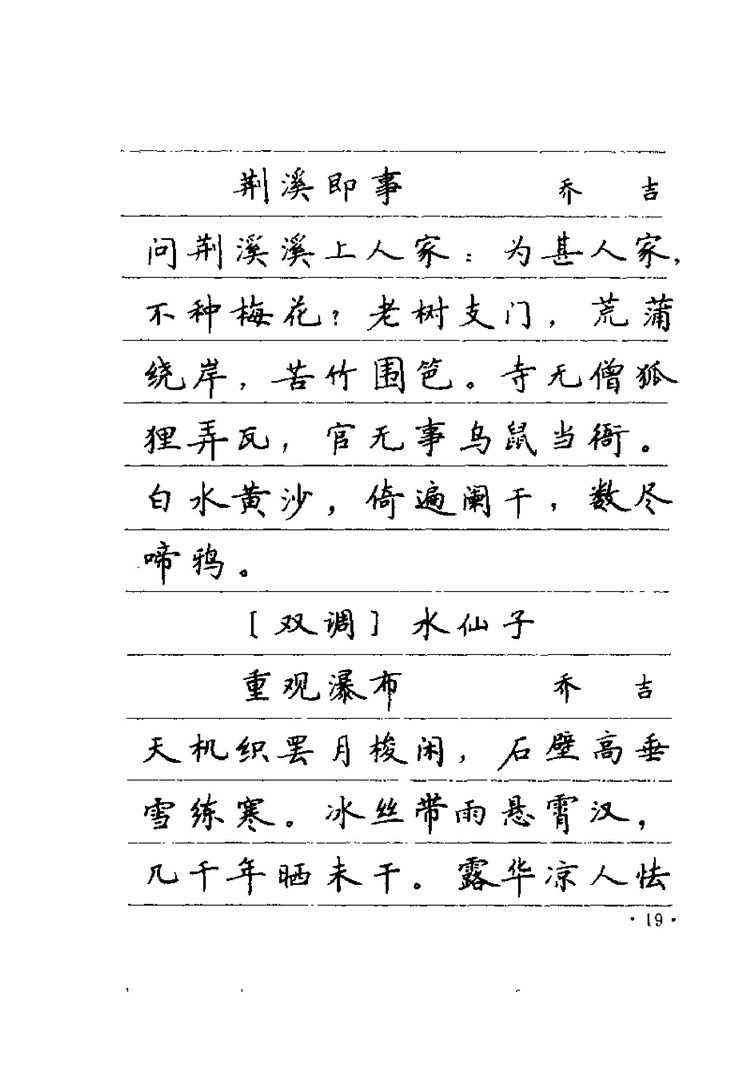 荆溪即事 乔 吉
问荆溪溪上人家：为甚人家，
不种梅花？老树支门，荒蒲
绕岸，苦竹围笆。寺无僧狐
狸弄瓦，官无事乌鼠当衙。
白水黄沙，倚遍阑干，数尽
啼鸦。
［双调］水仙子
重观瀑布 乔 吉
天机织罢月梭闲，石壁高垂
雪练寒。冰丝带雨悬霄汉，
几千年晒未干。露华凉人怯
·19·